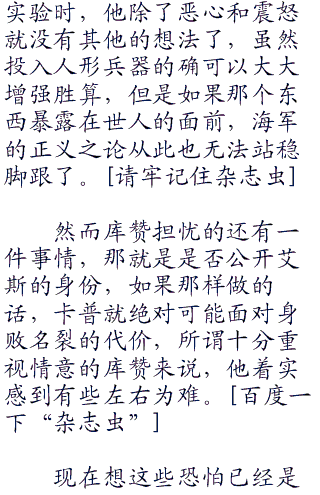 实验时，他除了恶心和震怒
就没有其他的想法了，虽然
投入人形兵器的确可以大大
增强胜算，但是如果那个东
西暴露在世人的面前，海军
的正义之论从此也无法站稳
脚跟了。[请牢记住杂志虫]
然而库赞担忧的还有一
件事情，那就是是否公开艾
斯的身份，如果那样做的
话，卡普就绝对可能面对身
败名裂的代价，所谓十分重
视情意的库赞来说，他着实
感到有些左右为难。[百度一
下“杂志虫”]
现在想这些恐怕已经是